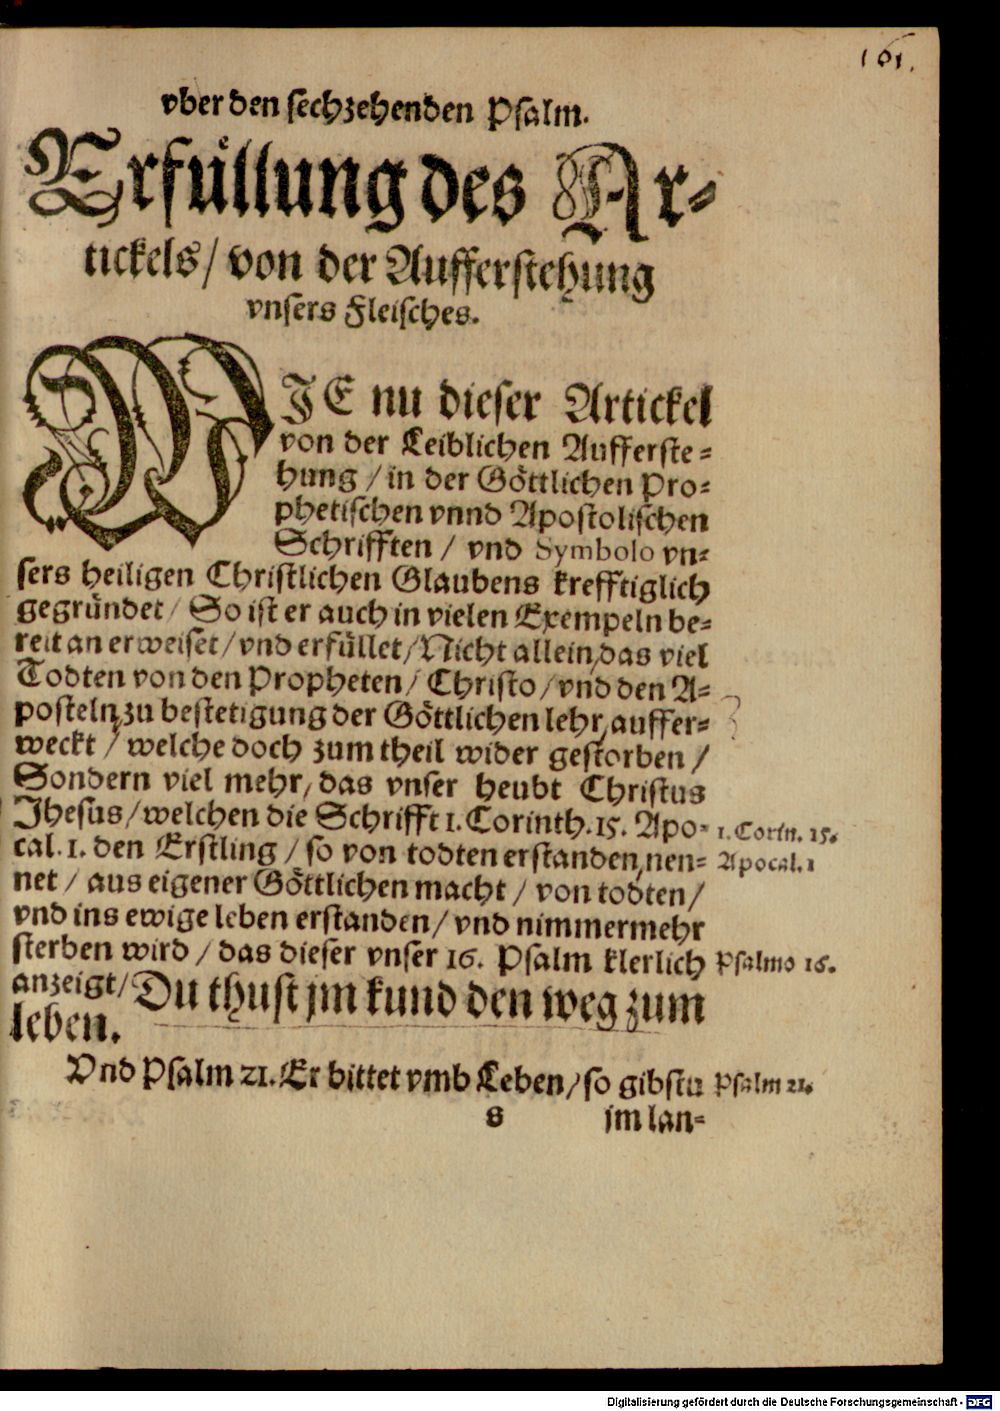 161.
vber den sechzehenden Psalm.
Erfüllung des Ar-
tickels/ von der Aufferstehung
vnsers Fleisches.
WJE nu dieser Artickel
von der Leiblichen Aufferste-
hung / in der Göttlichen Pro-
phetischen vnnd Apostolischen
Schrifften / vnd Symbolo vn-
sers heiligen Christlichen Glaubens krefftiglich
gegründet/ So ist er auch in vielen Exempeln be-
reit an erweiset/ vnd erfüllet/ Nicht allein, das viel
Todten von den Propheten/ Christo/ vnd den A-
posteln, zu bestetigung der Göttlichen lehr, auffer-
weckt / welche doch zum theil wider gestorben /
Sondern viel mehr, das vnser heubt Christus
Jhesus/ welchen die Schrifft 1. Corinth. 15. Apo- 1. Corin. 15.
cal. 1. den Erstling / so von todten erstanden, nen- Apocal. 1
net / aus eigener Göttlichen macht / von todten/
vnd ins ewige leben erstanden/ vnd nimmermehr
sterben wird / das dieser vnser 16. Psalm klerlich Psalmo 16.
anzeigt/ Du thust jm kund den weg zum
leben.
Vnd Psalm 21. Er bittet vmb Leben/ so gibstu Psalm 21.
s jm lan-
Digitalisierung gefördert durch die Deutsche Forschungsgemeinschaft - DFG